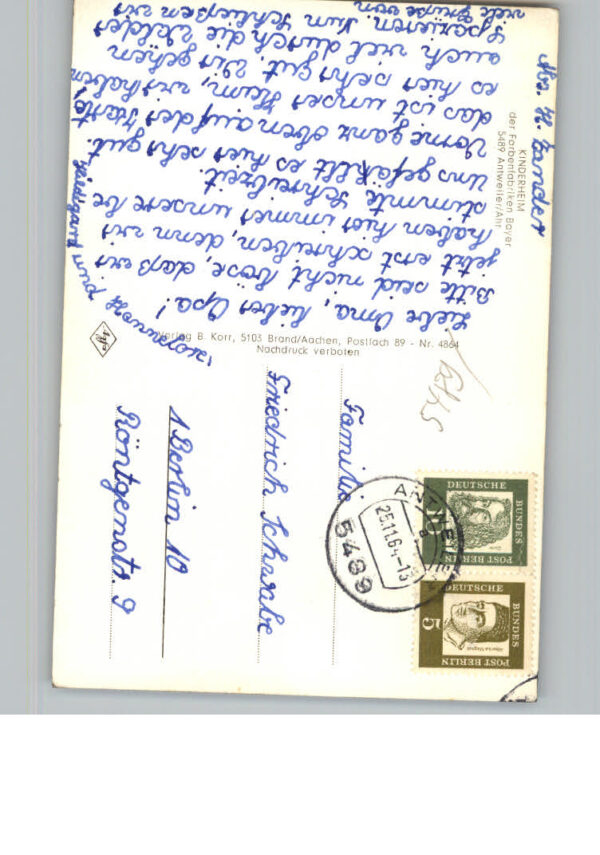 Abs. H. Zander
KINDERHEIM
der Farbenfabriken Bayer
5489 Antweiler/Ahr
Liebe Oma, lieber Opa!
Bitte seid nicht böse, daß wir
jetzt erst schreiben, denn wir
haben hier immer unsere be
stimmte Schreibzeit.
Uns gefällt es hier sehr gut.
Vorne ganz oben auf der Karte,
das ist unser Heim, wir haben
es hier sehr gut. Wir gehen
auch viel durch die Wälder
spazieren. Nun schließen wir
viele Grüße von
und Hannelore
Verlag B. Korr, 5103 Brand/Aachen, Postfach 89 - Nr. 4864
Nachdruck verboten
Agfa
Familie
Friedrich Schwabe
1 Berlin 10
Röntgenstr. 9
5489
25.11.64-13
a
DEUTSCHE
BUNDES
POST BERLIN
10
DEUTSCHE
BUNDES
POST BERLIN
5
Albertus Magnus